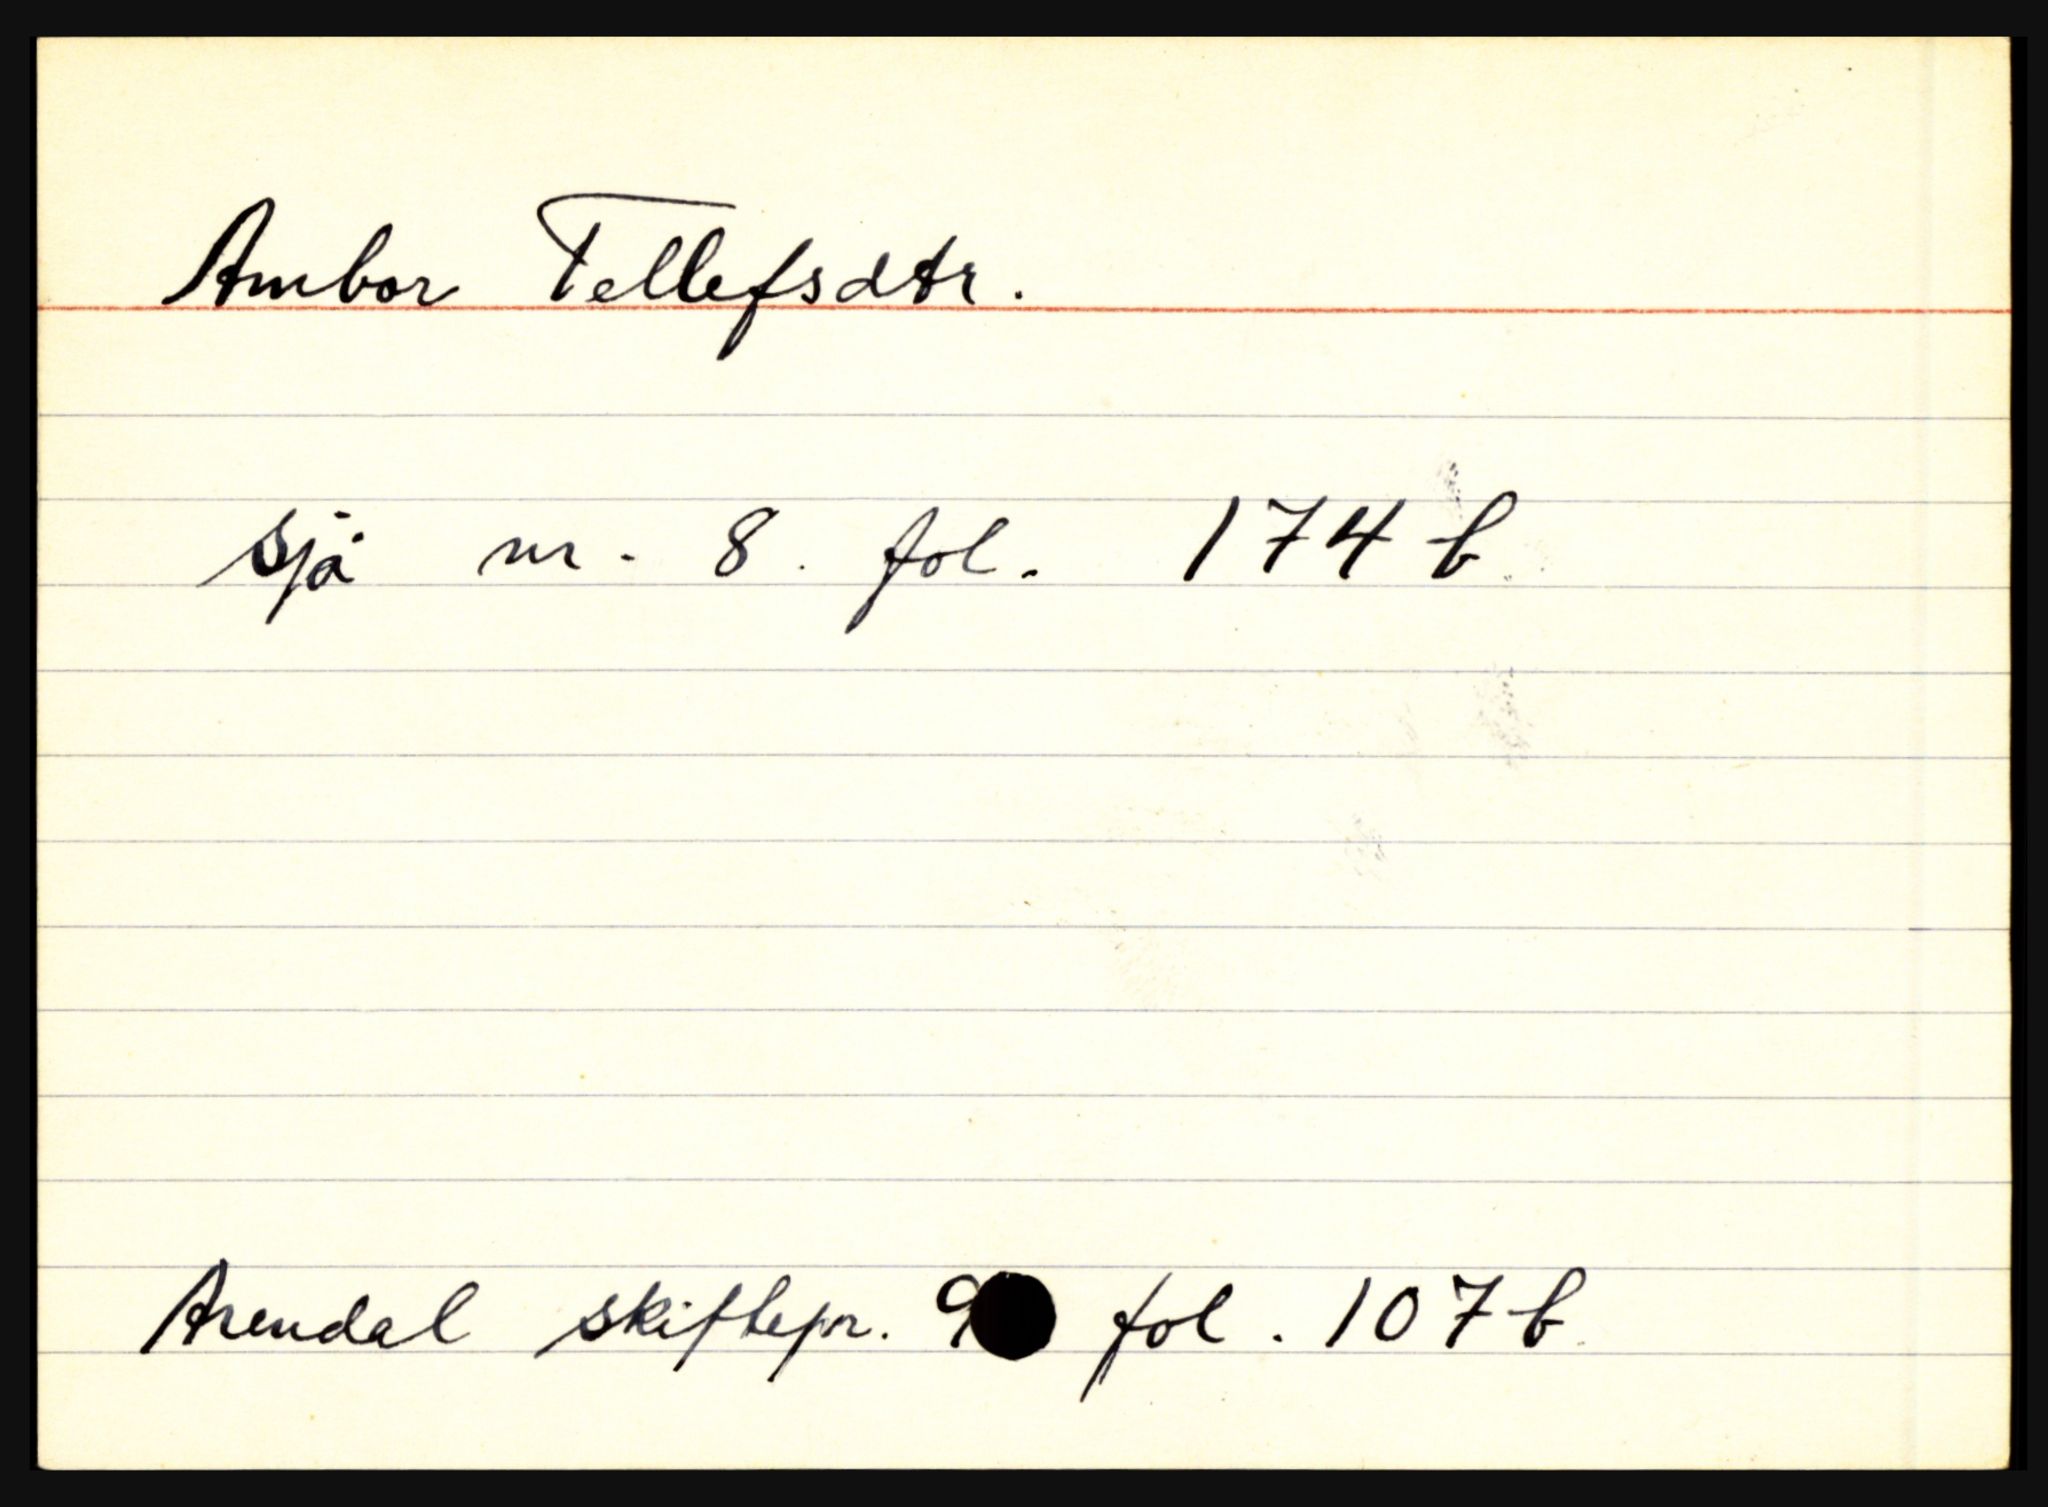 Ambor Tellefsdtr.
sjå nr. 8. fol. 174 b.
Arendal skiftepr. 9 fol. 107 b.